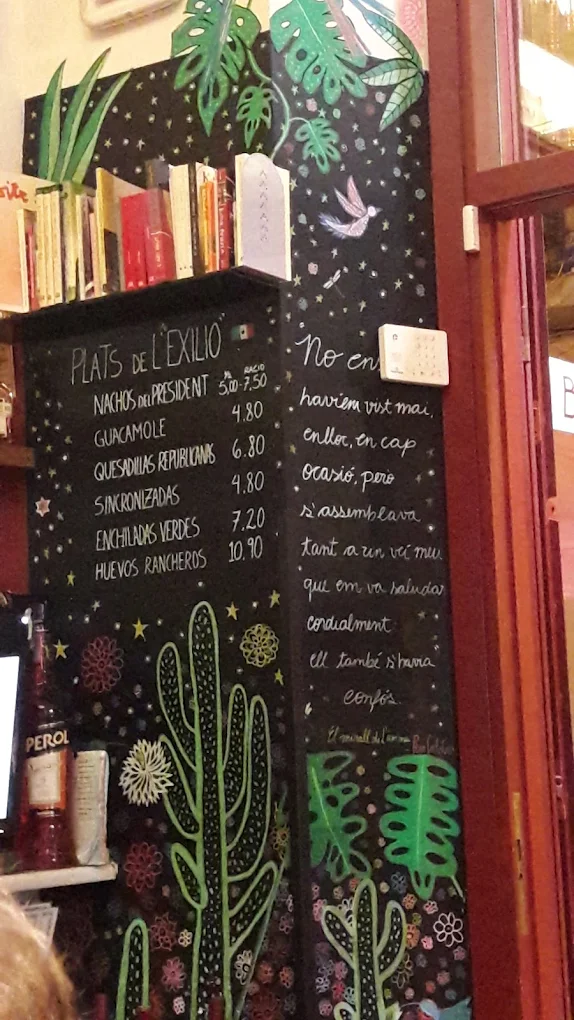 PLATS DE L'"EXILIO"
½ RACIÓ
NACHOS DEL PRESIDENT 5,00-7,50
GUACAMOLE 4.80
QUESADILLAS REPUBLICANAS 6.80
SINCRONIZADAS 4.80
ENCHILADAS VERDES 7.20
HUEVOS RANCHEROS 10,90
No ens
havíem vist mai,
enlloc, en cap
ocasió, però
s'assemblava
tant a un veí meu
que em va saludar
cordialment:
ell també s'havia
confós.
El mirall de l'ànima Pere Calders
PEROL
B